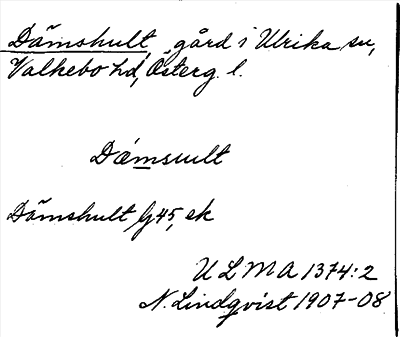 Dämshult, gård i Ulrika sn,
Valkebo hd, Österg. l.
Dǽmsult
Dämshult G45, ek
ULMA 1374:2
N. Lindqvist 1907-08